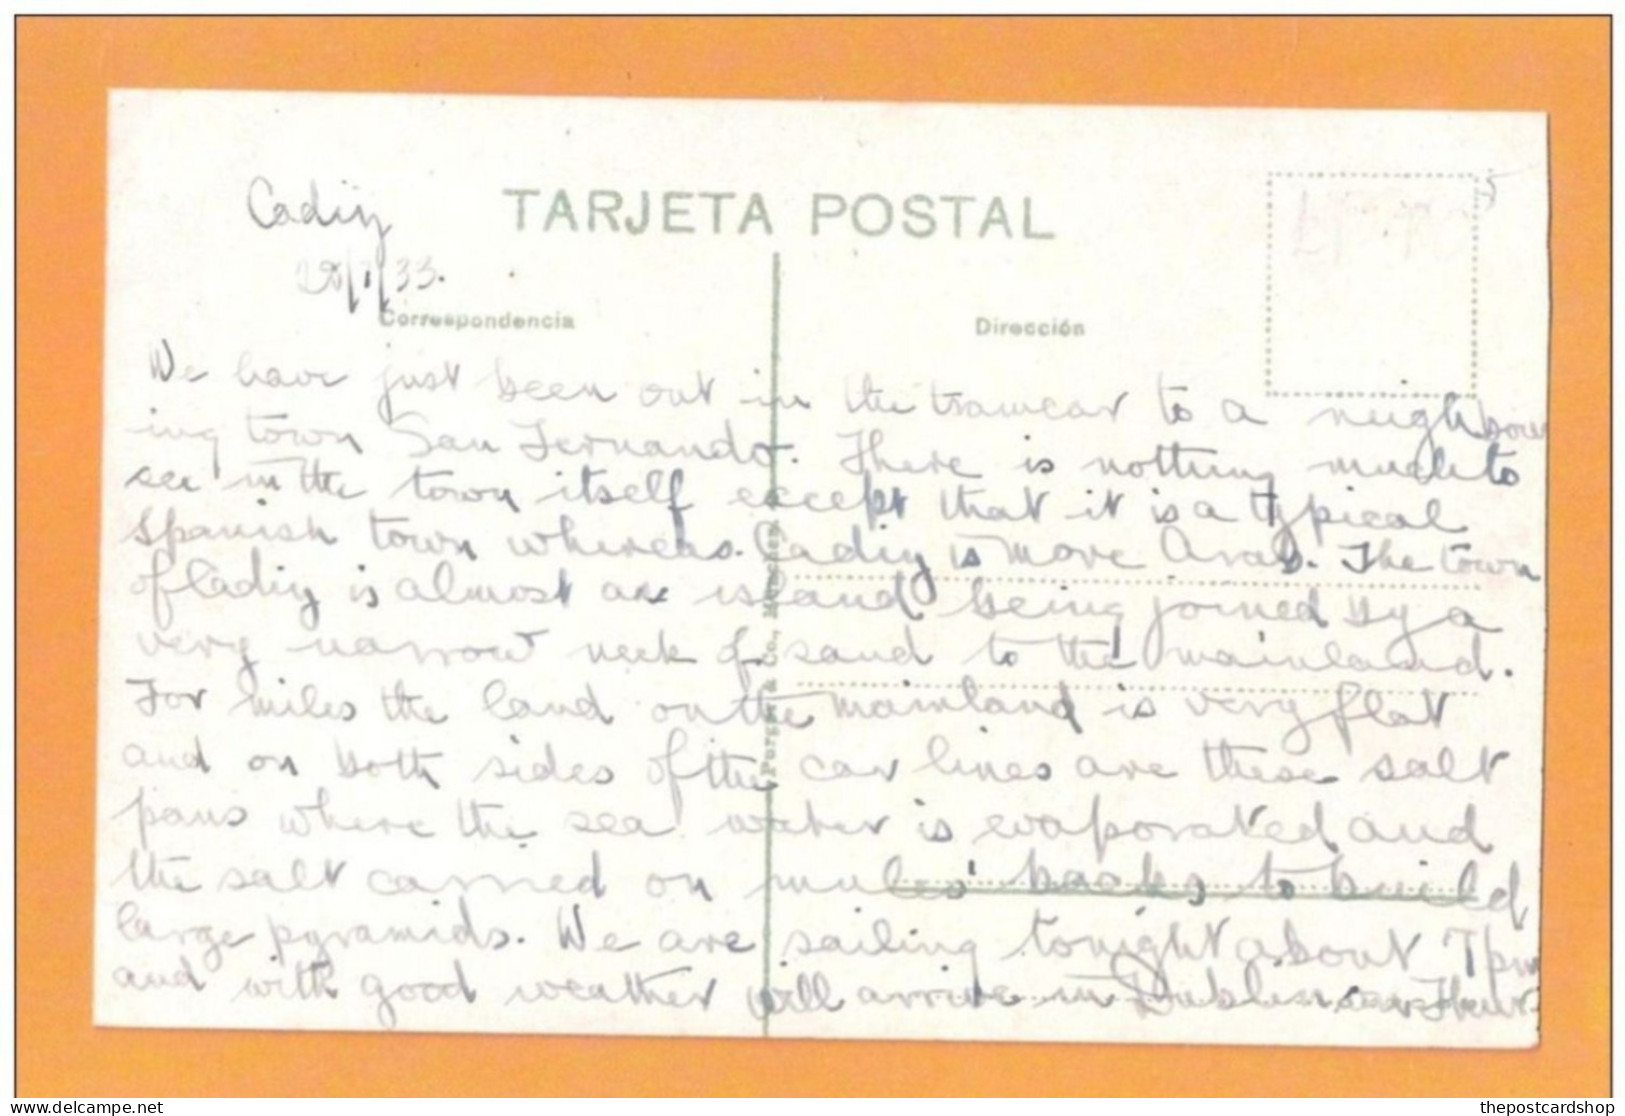 Cadiz
TARJETA POSTAL
28/1/33.
Correspondencia
Dirección
We have just been out in the tramcar to a neighbour
ing town San Fernando. There is nothing much to
see in the town itself except that it is a typical
Spanish town whereas Cadiz is more Arab. The town
of Cadiz is almost an island being joined by a
very narrow neck of sand to the mainland.
For miles the land on the mainland is very flat
and on both sides of the car lines are these salt
pans where the sea water is evaporated and
the salt carried on mules' backs to build
large pyramids. We are sailing tonight about 7pm
and with good weather will arrive in Dublin Thur
& Co.,
delcampe.net
thepostcardshop